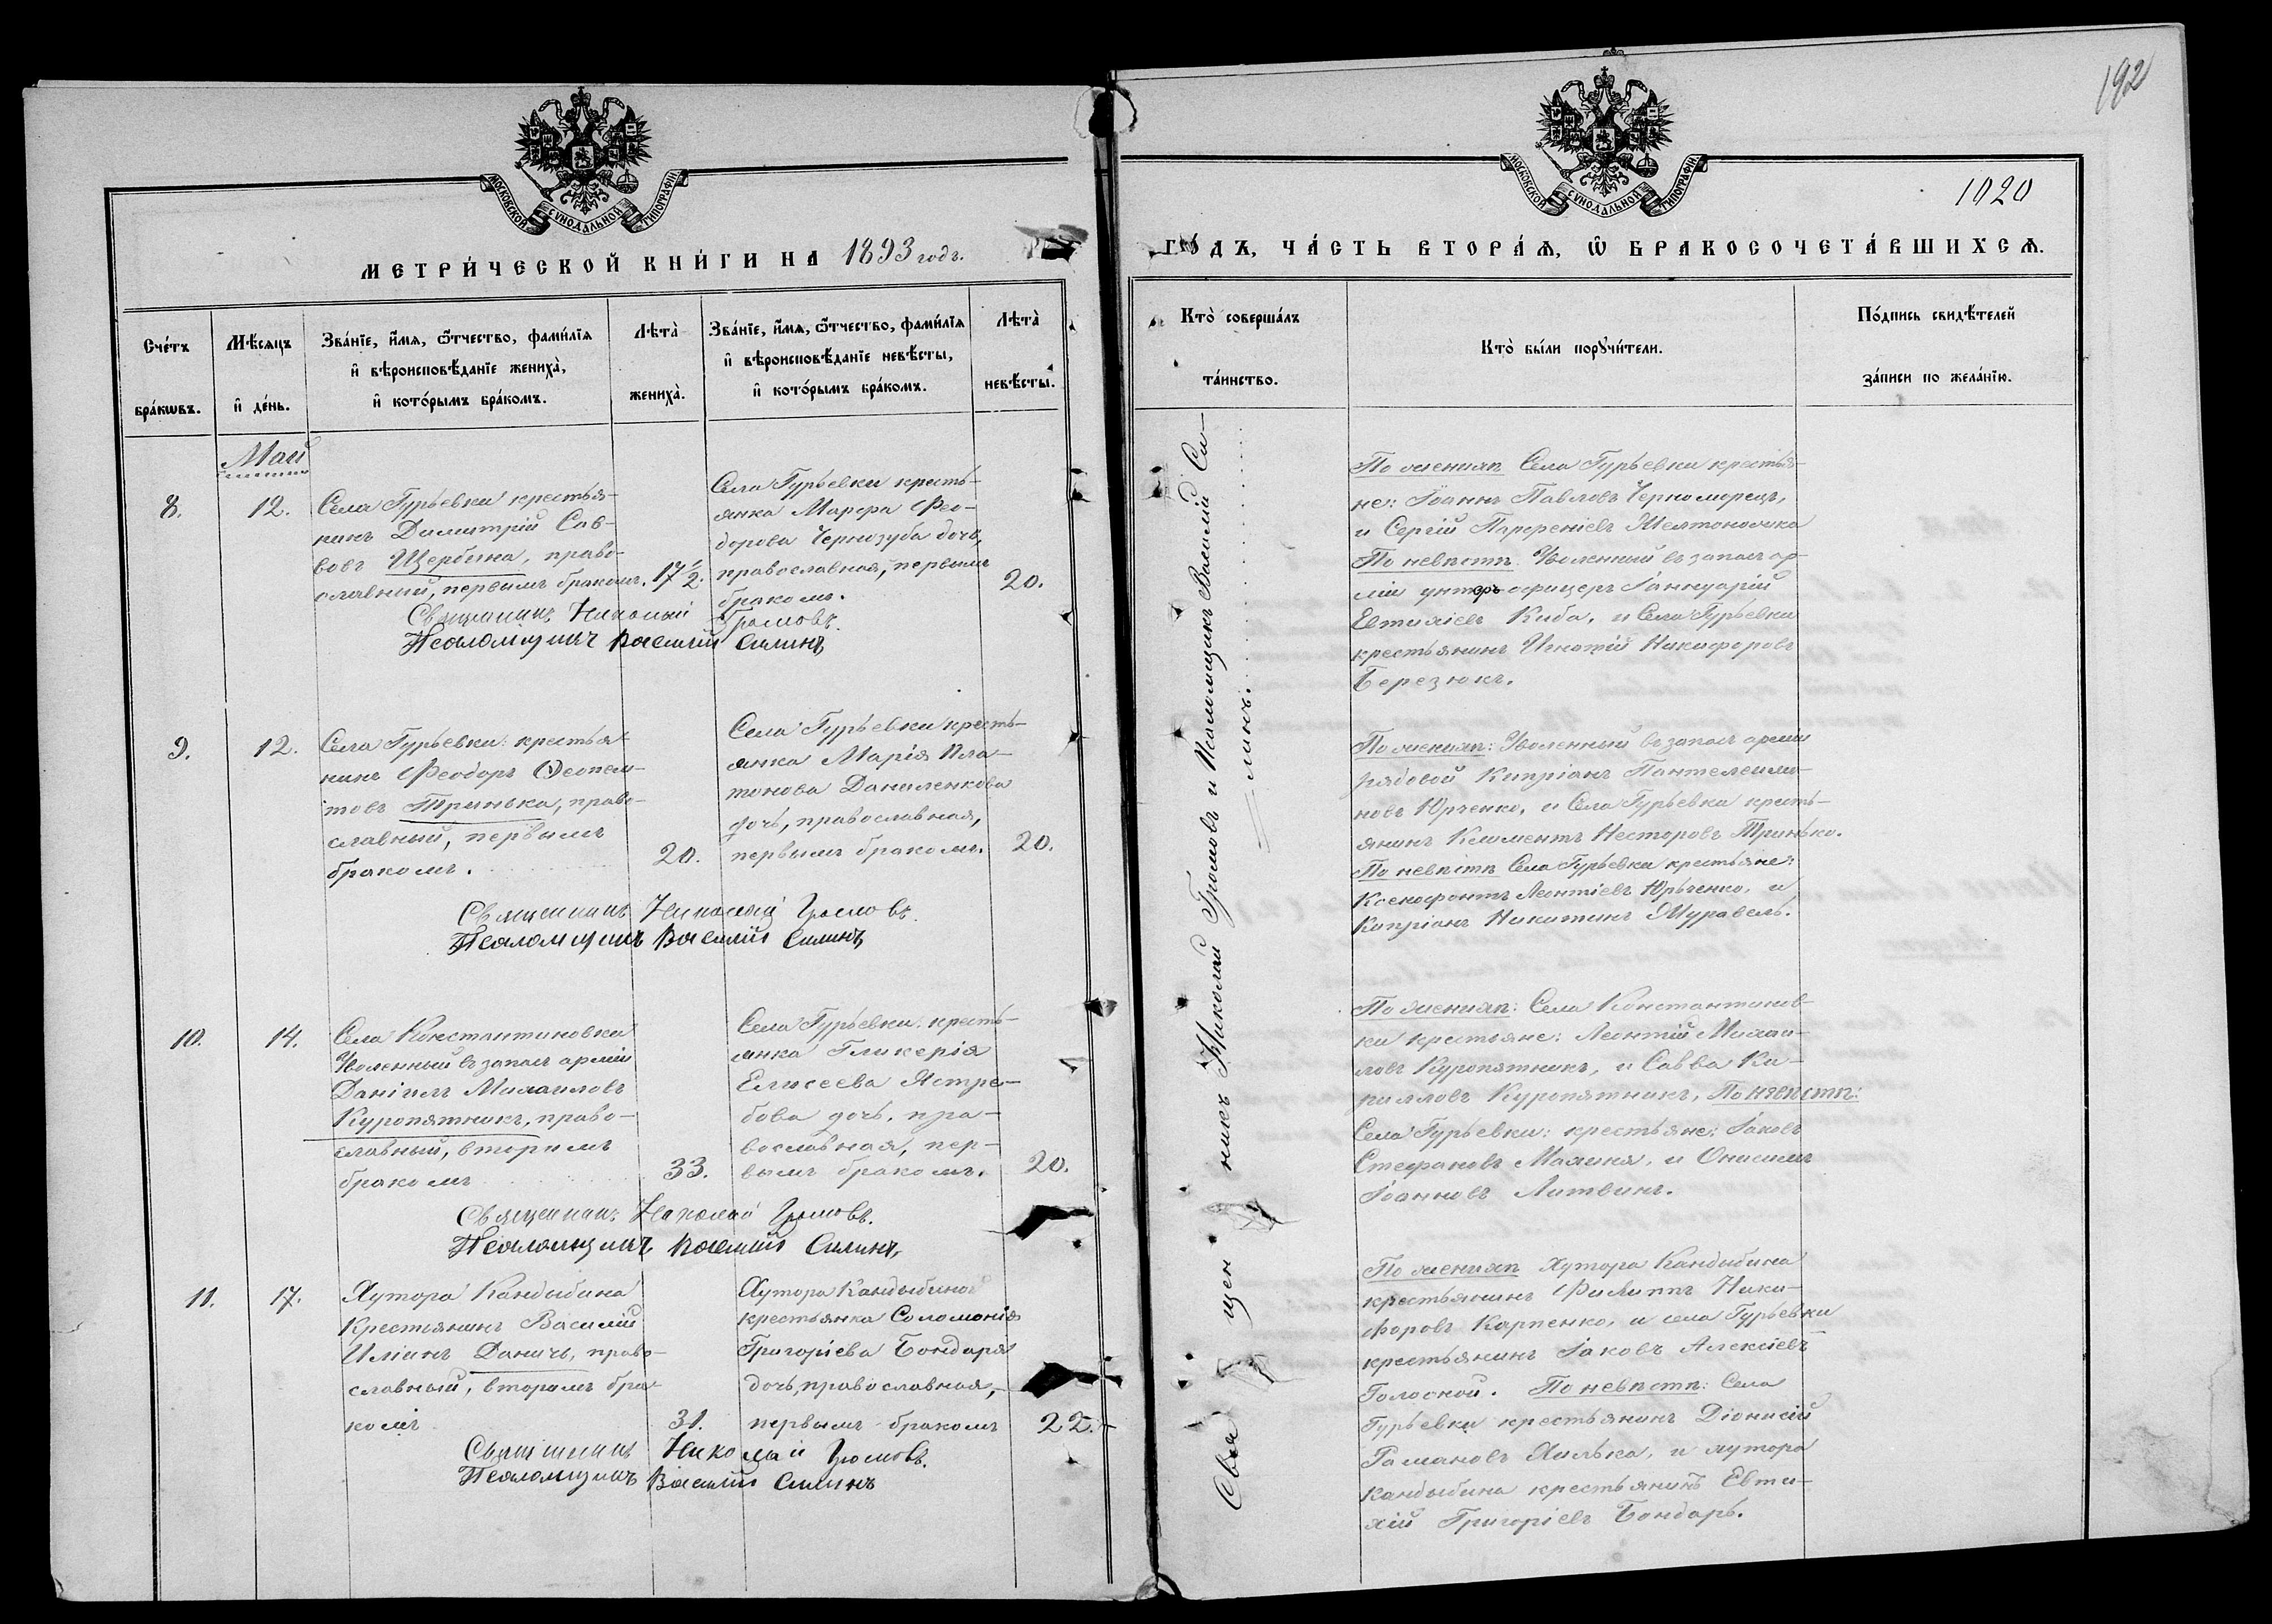 192
МОСКОВСКОЙ СѴНОДАЛЬНОЙ ТИПОГРАФІИ
МЕТРИ́ЧЕСКОЙ КНИ́ГИ НА 1893 годъ.
Сче́тъ
бра́кѡвъ.
Мѣ́сяцъ
и҆ де́нь.
Зва́нїе, и҆́мѧ, ѻ҆́тчество, фами́лїѧ
и҆ вѣроисповѣ́данїе жениха̀,
и҆ кото́рымъ бра́комъ.
Лѣта̀
жениха̀.
Зва́нїе, и҆́мѧ, ѻ҆́тчество, фами́лїѧ
и҆ вѣроисповѣ́данїе невѣ́сты,
и҆ кото́рымъ бра́комъ.
Лѣта̀
невѣ́сты.
Май
8.
12.
Села Гурьевки крестья-
нинъ Димитрій Сав-
вовъ Щербина, право-
славный, первымъ бракомъ.
17 1/2.
Села Гурьевки кресть-
янка Марфа Фео-
дорова Чернозуба дочь,
православная, первымъ
бракомъ.
20.
Священникъ Николай Громовъ.
Псаломщикъ Василій Силинъ
9.
12.
Села Гурьевки: крестья
нинъ Феодоръ Ѳеопем-
товъ Тринька, право-
славный, первымъ
бракомъ.
20.
Села Гурьевки кресть-
янка Марія Пла-
тонова Даниленкова
дочь, православная,
первымъ бракомъ.
20.
Священникъ Николай Громовъ.
Псаломщикъ Василій Силинъ
10.
14.
Села Константиновки
Уволенный въ запасъ арміи
Даніилъ Михаиловъ
Куропятникъ, право-
славный, вторымъ
бракомъ
33.
Села Гурьевки: кресть-
янка Гликерія
Елисеева Ястре-
бова дочь, пра-
вославная, пер-
вымъ бракомъ.
20.
Священникъ Николай Громовъ.
Псаломщикъ Василій Силинъ,
11.
17.
Хутора Кандыбина
Крестьянинъ Василій
Иліинъ Даничъ, право-
славный, вторымъ бра-
комъ
31.
Хутора Кандыбина
крестьянка Соломонія
Григоріева Бондаря
дочь, православная,
первымъ бракомъ
22.
Священникъ Николай Громовъ.
Псаломщикъ Василій Силинъ
МОСКОВСКОЙ СѴНОДАЛЬНОЙ ТИПОГРАФІИ
1020
ГО́ДЪ, ЧА́СТЬ ВТОРА́Ѧ, Ѡ҆ БРАКОСОЧЕТА́ВШИХСѦ.
Кто̀ соверша́лъ
та́инство.
Кто̀ бы́ли порꙋчи́тели.
По́дпись свидѣ́телей
за́писи по жела́нїю.
Священникъ Николай Громовъ и Псаломщикъ Василій Си-
линъ.
По женихѣ Села Гурьевки крестья-
не: Іоаннъ Павловъ Черноморецъ,
и Сергій Парфеніевъ Желтоножка
По невѣстѣ Уволенный въ запасъ ар-
міи унтеръ офицеръ Іаннуарій
Евтихіевъ Киба, и Села Гурьевки
крестьянинъ Игнатій Никифоровъ
Березюкъ.
По женихѣ: Уволенный въ запасъ арміи
рядовой Кипріанъ Пантелеимо-
новъ Юрченко, и Села Гурьевка кресть-
янинъ Климентъ Несторовъ Тринько.
По невѣстѣ Села Гурьевки крестьяне:
Ксенофонтъ Леонтіевъ Юрьченко, и
Кипріанъ Никитинъ Журавель.
По женихѣ: Села Константинов-
ки крестьяне: Леонтій Михаи-
ловъ Куропятникъ, и Савва Ки-
рилловъ Куропятникъ, По невѣстѣ:
Села Гурьевки: крестьяне: Іаковъ
Стефановъ Махиня, и Онисимъ
Іоанновъ Литвинъ.
По женихѣ Хутора Кандыбина
крестьянинъ Филиппъ Ники-
форовъ Карпенко, и села Гурьевки
крестьянинъ Іаковъ Алексіевъ
Голосной. По невѣстѣ: Села
Гурьевки крестьянинъ Діонисій
Романовъ Хилька, и хутора
Кандыбина крестьянинъ Евти-
хій Григоріевъ Бондарь.